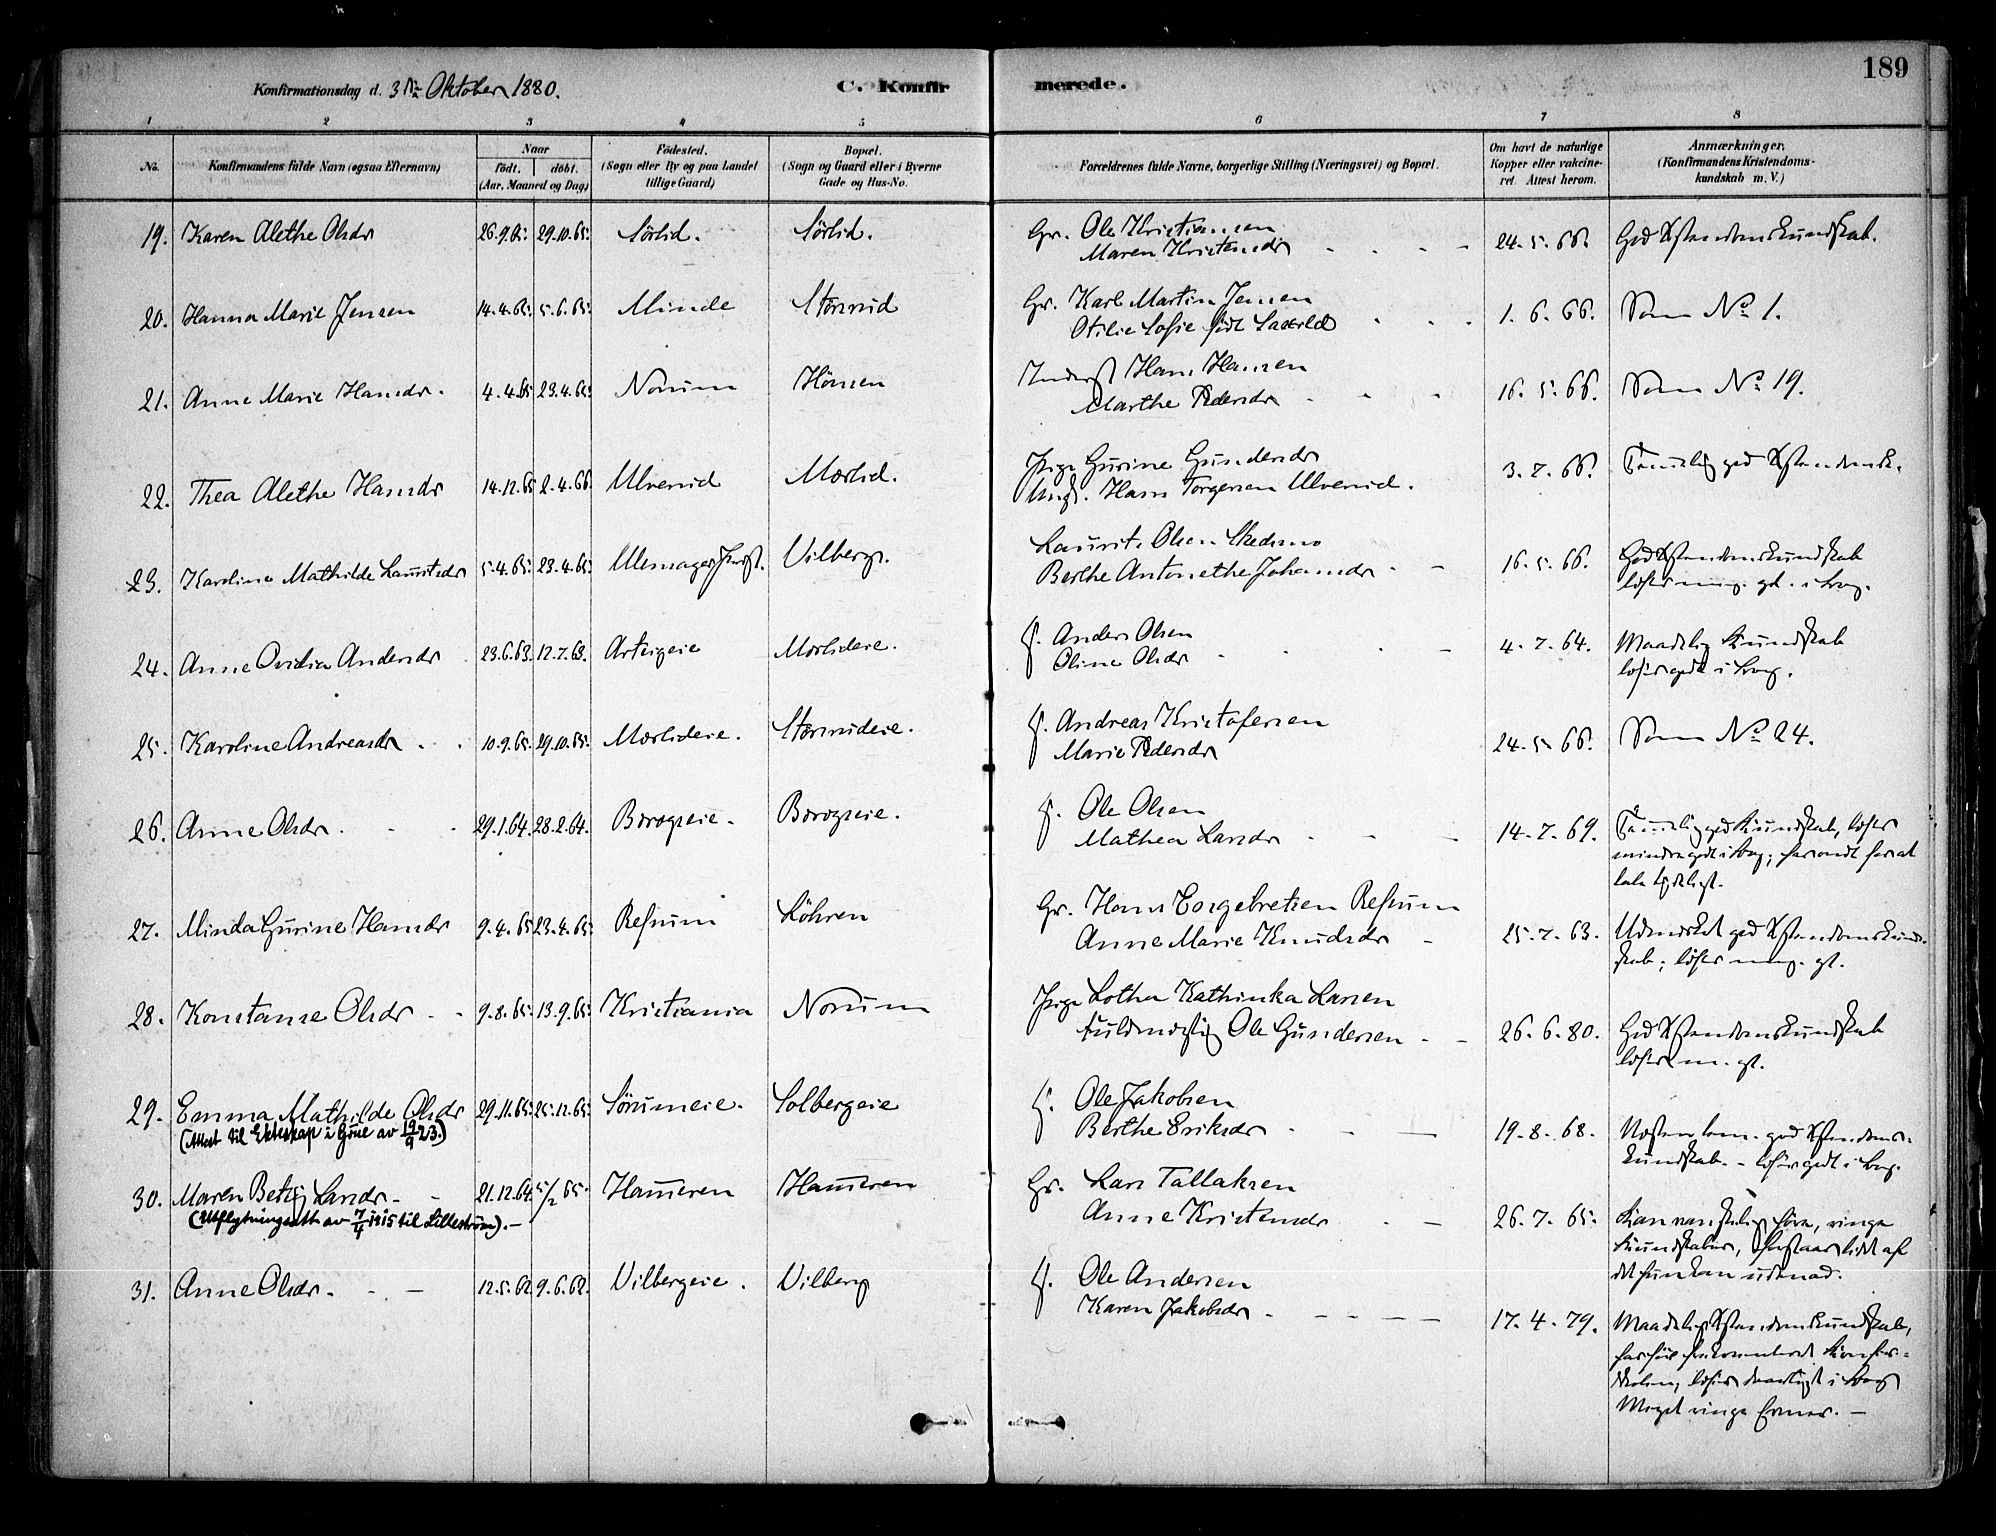 189
Konfirmationsdag d. 3die Oktober 1880.
C. Konfirmerede.
1 2 3 4 5 6 7 8
No. Konfirmandens fulde Navn (ogsaa Efternavn) Naar født. døbt. (Aar, Maaned og Dag) Fødested. (Sogn eller By og paa Landet tillige Gaard) Bopæl. (Sogn og Gaard eller i Byerne Gade og Hus-No. Forældrenes fulde Navne, borgerlige Stilling (Næringsvei) og Bopæl. Om havt de naturlige Kopper eller vakcineret. Attest herom. Anmærkninger. (Konfirmandens Kristendomskundskab m. V.)
19. Karen Alethe Olsdr 26.9.65. 29.10.65. Sörlid. Sörlid. Gr. Ole Kristiansen 24.5.66. God Xstendomskundskab.
Maren Kristensdr
20. Hanna Marie Jensen 14.4.65. 5.6.65. Minde Stensrud Gr. Karl Martin Jensen 1.6.66. Som No 1.
Otilie Sofie født
21. Anne Marie Hansdr. 4.4.65 23.4.65. Norum Hönsen Inderst Hans Hansen 16.5.66. Som No 19.
Marthe Pedersdr
22. Thea Alethe Hansdr 14.12.65 2.4.66 Ulvenid Mærlid. Pige Gurine Gundersdr 3.7.66. Temmelig god Xstendomsk.
Ungk. Hans Torgersen Ulvenid.
23. Karoline Mathilde Lauritsdr 5.4.65. 23.4.65. Vilberg. Laurits Olsen Skedsmo 16.5.66. God Xstendomskundskab
Berthe Antonethe Johansdr
læser i bog.
24. Anne Ovidia Andersdr 23.6.63. 12.7.63. Arteigeie Mærlideie. f. Anders Olsen 4.7.64. Maadelig Kundskab
Oline Olsdr
læser godt i bog.
25. Karoline Andreasdr 10.9.65. 29.10.65. Mærlideie. Stensrudeie. f. Andreas Kristofersen 24.5.66. Som No 24.
Marie Pedersdr
26. Anne Olsdr. 29.1.64. 28.2.64. Borogseie. Borogseie. f. Ole Olsen 14.7.69. Temmelig god Kundskab, læser
Mathea Larsdr
mindre godt i bog; har ondt for at
tale tydeligt.
27. Minda Gurine Hansdr 9.4.65 23.4.65. Refsum Löhren Gr. Hans Torgebretsen Refsum 25.7.63. Udmerket god Xstendomskundskab;
Anne Marie Knudsdr
læser gt.
28. Konstanse Olsdr 9.8.65. 13.9.65. Kristiania Norum Pige Lothea Kathinka Larsen 26.6.80. God Xstendomskundskab
Fuldmægtig Ole Gundersen
læser m. gt.
29. Emma Mathilde Olsdr 29.11.65. 25.12.65. Sörumeie. Solbergeie f. Ole Jakobsen 19.8.68. Næsten tem. god Xstendomskundskab.
(Attest til Ekteskap i Grue av 19/9 23.)
Berthe Eriksdr
læser godt i bog.
30. Maren Betzy Larsdr. 21.12.64. 5/2 65. Hammeren Hammeren Gr. Lars Tallaksen 26.7.65. Kan vanskelig høre, ringe
(Utflytningsatt. av 7/4 1915 til Lillestrøm).
Anne Kristensdr
Kundskaber, forstaar lidt af
det hun kan udenad.
31. Anne Olsdr. 12.5.62. 9.6.62. Vilbergeie. Vilberg f. Ole Andersen 17.4.79. Maadelig Xstendomskundskab,
Karen Jakobsdr
læser daarligt i bog
Meget ringe Evner.